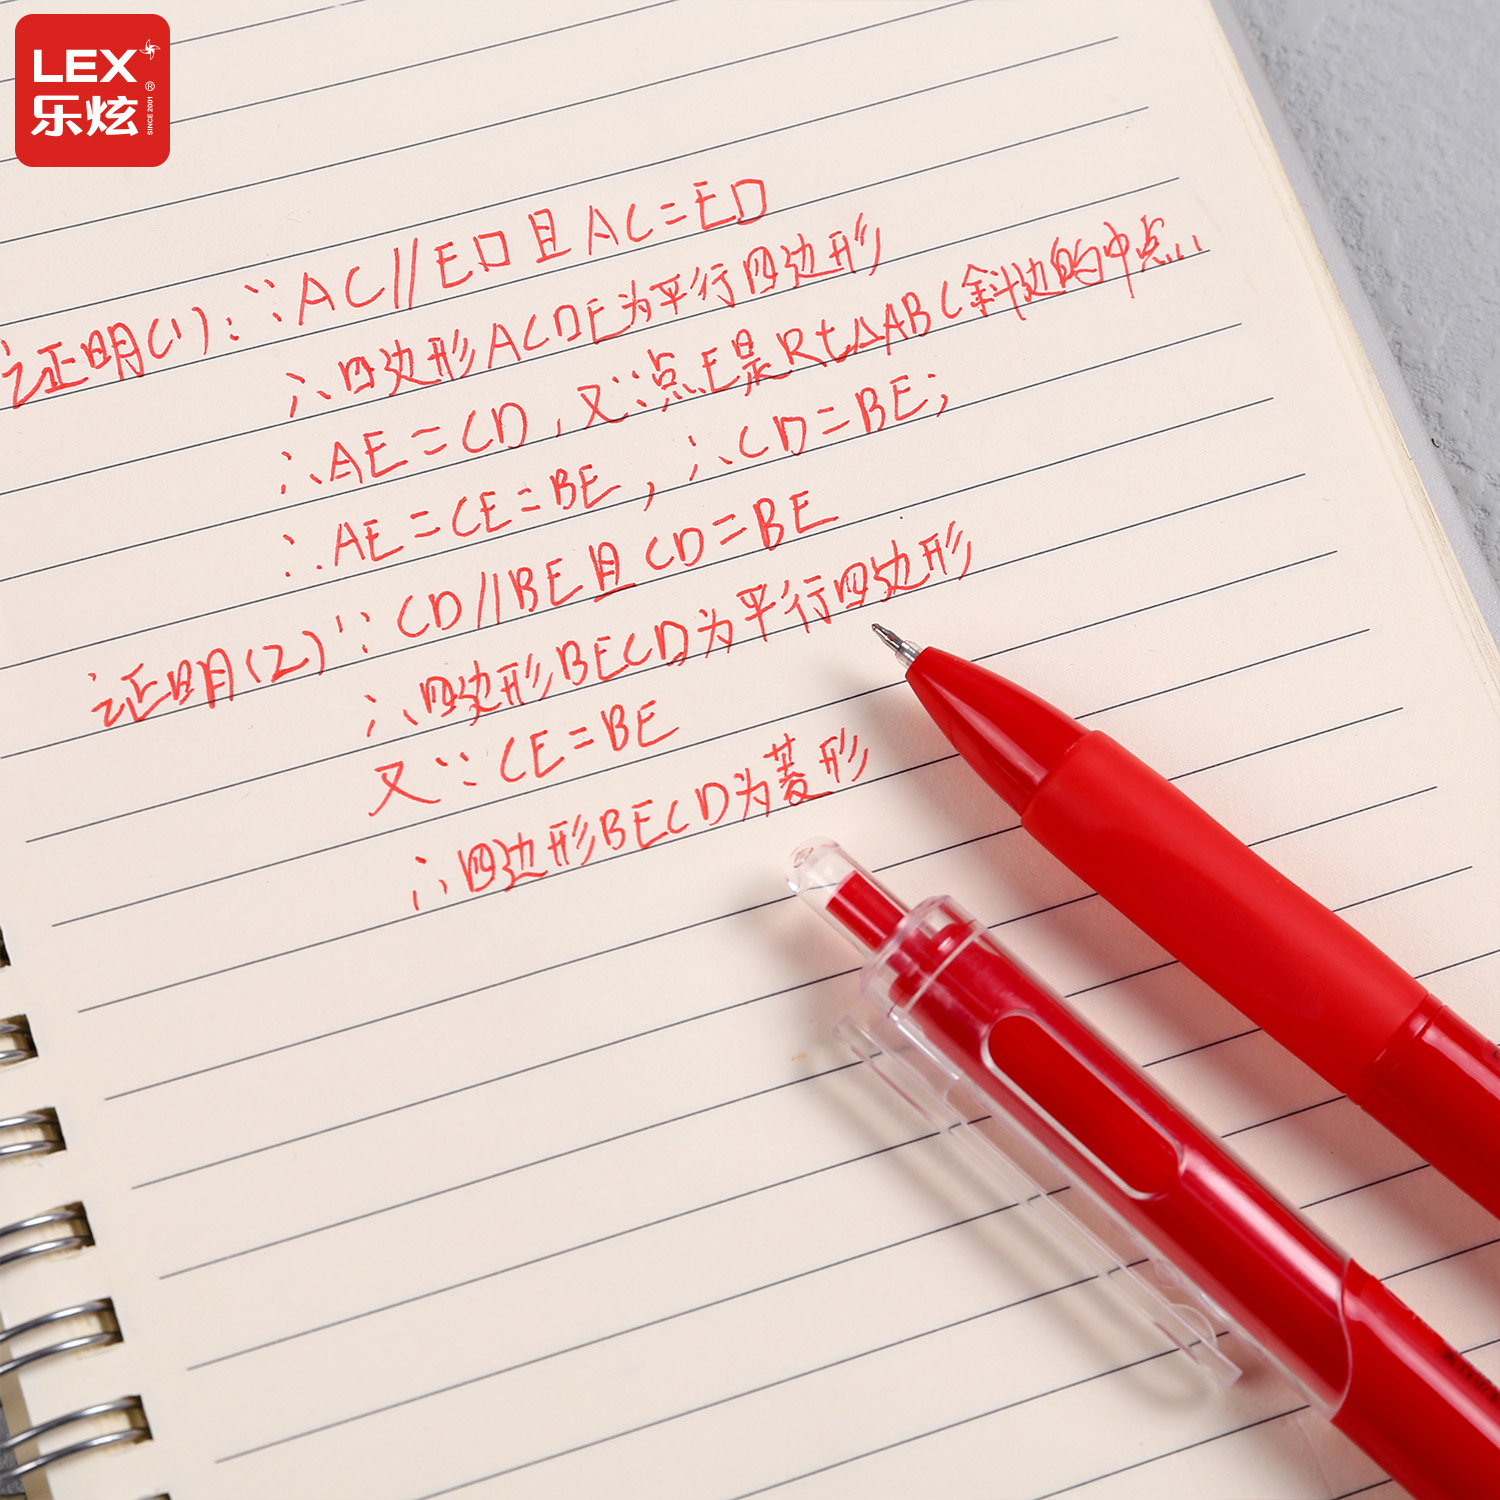 LEX
乐炫
®
SINCE 2001
证明(1):∵AC//ED且AC=ED
∴四边形ACDE为平行四边形
∴AE=CD,又∵点E是Rt△ABC斜边的中点
∴AE=CE=BE,∴CD=BE;
证明(2)∵CD//BE且CD=BE
∴四边形BECD为平行四边形
又∵CE=BE
∴四边形BECD为菱形